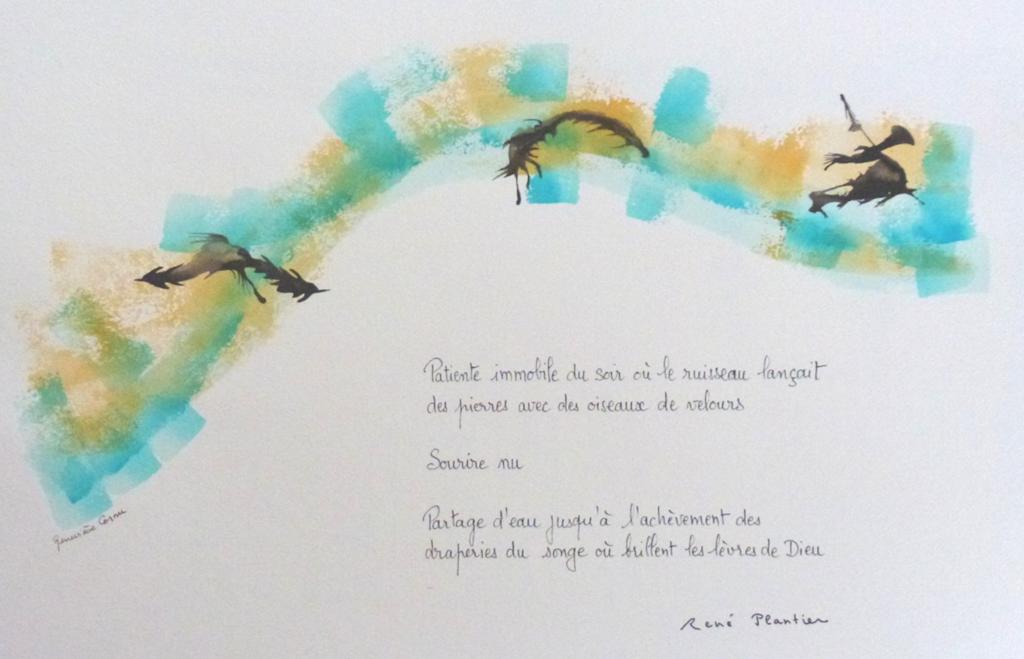 Patiente immobile du soir où le ruisseau lançait
des pierres avec des oiseaux de velours
Sourire nu
Partage d'eau jusqu'à l'achèvement des
draperies du songe où brillent les lèvres de Dieu
Geneviève Cornu
René Plantier